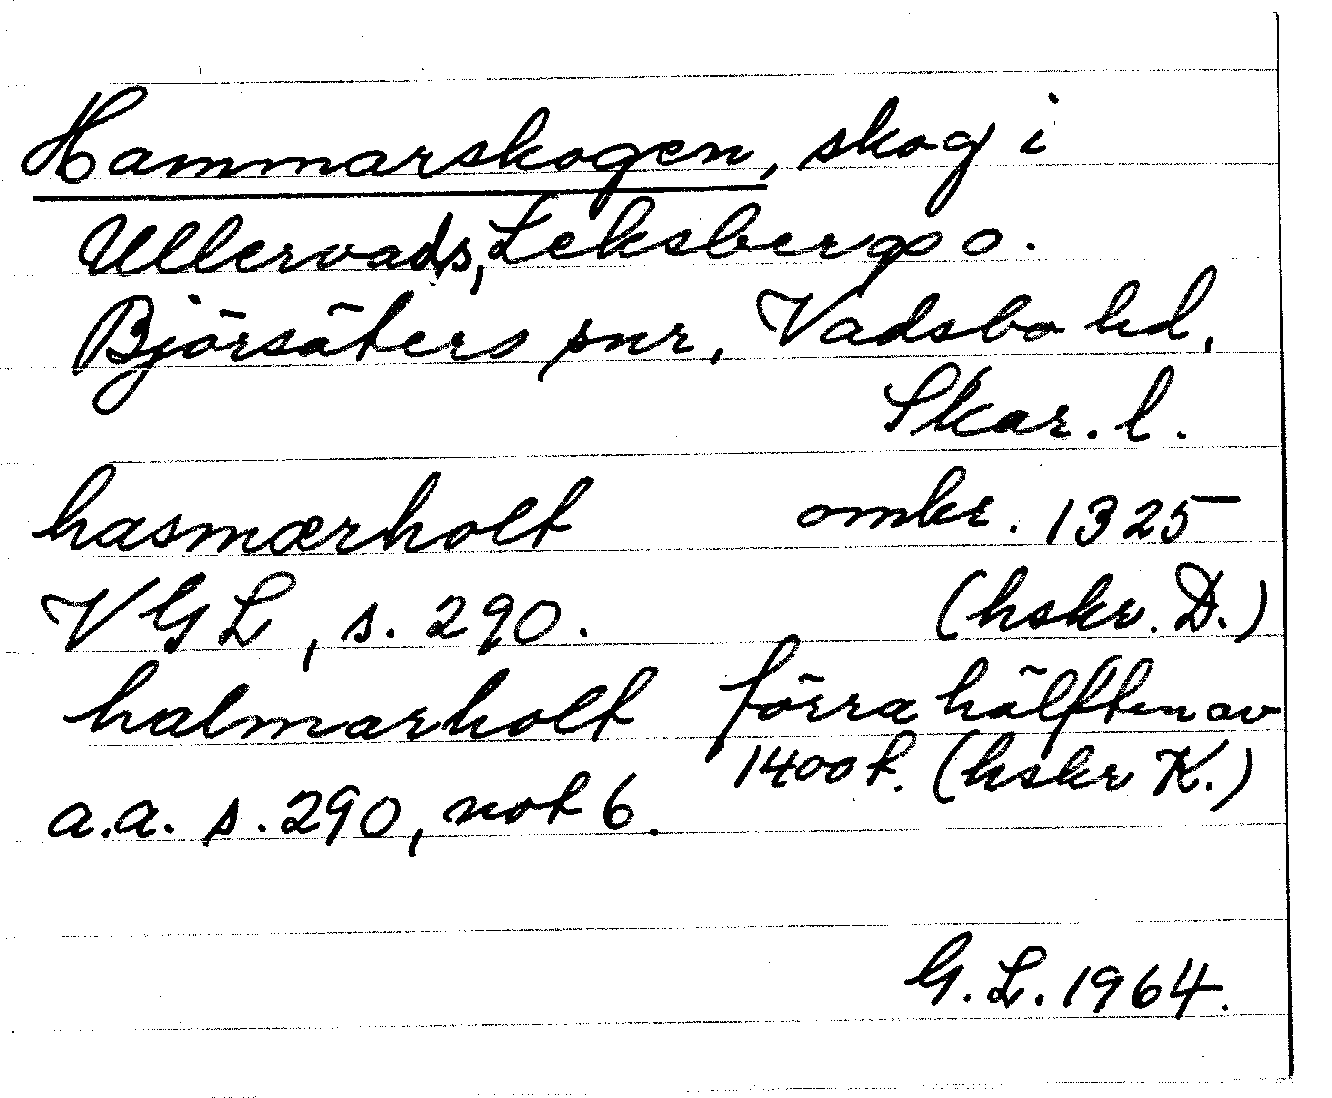 Hammarskogen, skog i
Ullervads, Leksbergs o.
Björsäters snr, Vadsbo hd,
Skar. l.
hasmærholt omkr. 1325
VGL, s. 290. (hskr. D.)
halmarholt förra hälften av
1400t. (hskr K.)
a.a. s. 290, not 6.
G. L. 1964.